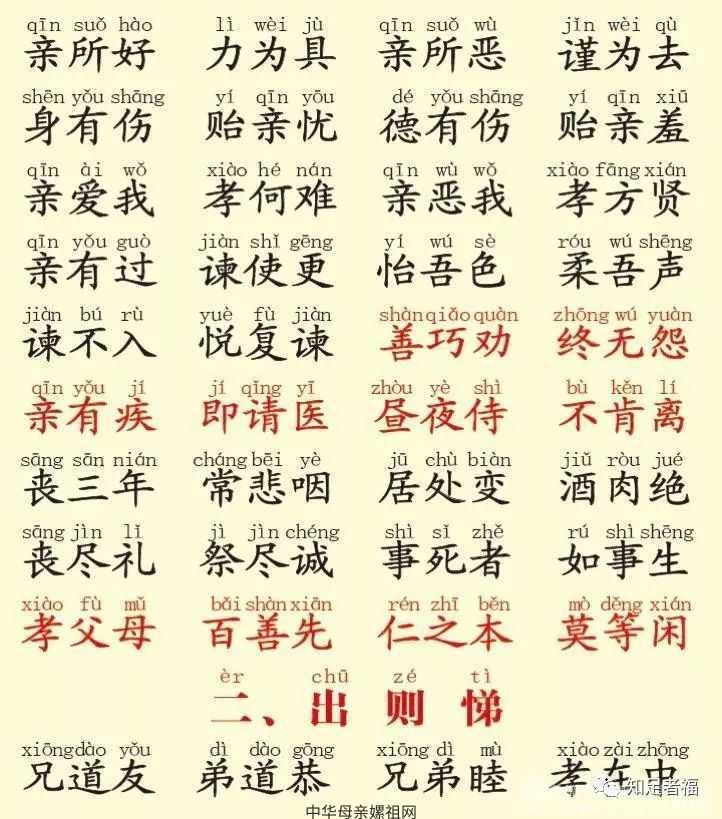 qīn suǒ hào lì wèi jù qīn suǒ wù jǐn wèi qù
亲所好 力为具 亲所恶 谨为去
shēn yǒu shāng yí qīn yōu dé yǒu shāng yí qīn xiū
身有伤 贻亲忧 德有伤 贻亲羞
qīn ài wǒ xiào hé nán qīn wù wǒ xiào fāng xián
亲爱我 孝何难 亲恶我 孝方贤
qīn yǒu guò jiàn shǐ gēng yí wú sè róu wú shēng
亲有过 谏使更 怡吾色 柔吾声
jiàn bú rù yuè fù jiàn shàn qiǎo quàn zhōng wú yuàn
谏不入 悦复谏 善巧劝 终无怨
qīn yǒu jí jí qǐng yī zhòu yè shì bù kěn lí
亲有疾 即请医 昼夜侍 不肯离
sāng sān nián cháng bēi yè jū chù biàn jiǔ ròu jué
丧三年 常悲咽 居处变 酒肉绝
sāng jìn lǐ jì jìn chéng shì sǐ zhě rú shì shēng
丧尽礼 祭尽诚 事死者 如事生
xiào fù mǔ bǎi shàn xiān rén zhī běn mò děng xián
孝父母 百善先 仁之本 莫等闲
èr chū zé tì
二、出则悌
xiōng dào yǒu dì dào gōng xiōng dì mù xiào zài zhōng
兄道友 弟道恭 兄弟睦 孝在中
知足者福
中华母亲嫘祖网